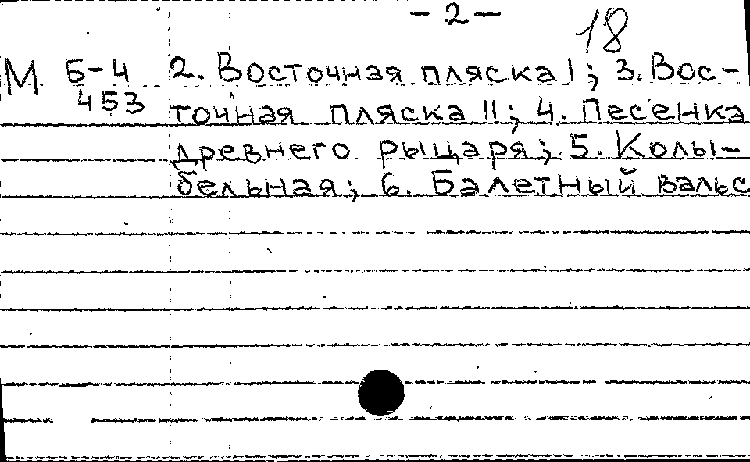 - 2 -
18
М Б-4 2. Восточная пляска I; 3. Вос-
453 точная пляска II; 4. Песенка
древнего рыцаря; 5. Колы-
бельная; 6. Балетный вальс